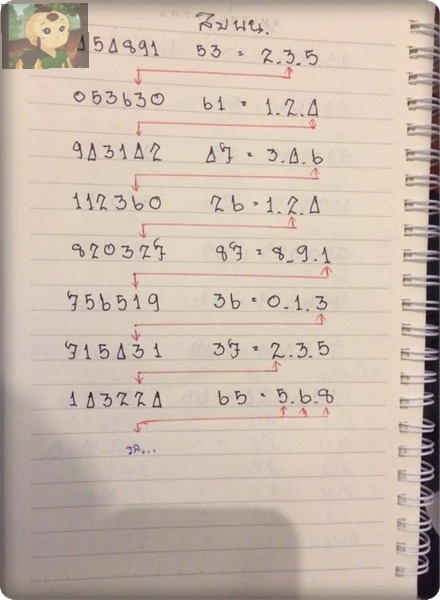 สิบบน.
454891 53 = 2.3.5
053630 61 = 1.2.4
943142 47 = 3.4.6
112360 26 = 1.2.4
820327 87 = 8.9.1
756519 36 = 0.1.3
715431 37 = 2.3.5
143224 65 = 5.6.8
รอ...